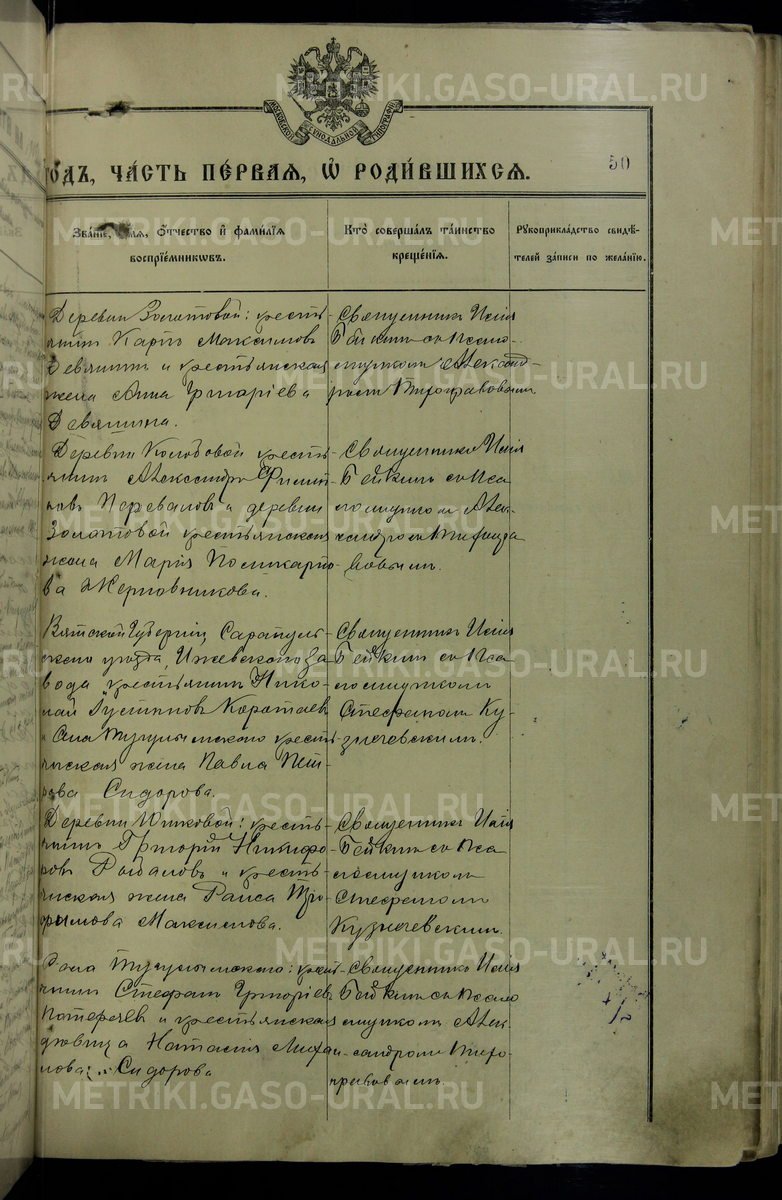 50
годъ, ча́сть пе́рваѧ, ѡ҆ роди́вшихсѧ.
Зва́нїе, и҆́мѧ, ѻ҆́тчество и҆ фами́лїѧ
воспрїе́мникѡвъ.
Кто̀ соверша́лъ та́инство
креще́нїѧ.
Рꙋкоприкла́дство свидѣ́-
телей за́писи по жела́нїю.
Деревни Золотовой: кресть-
янинъ Карпъ Максимовъ
Девятинъ и крестьянская
жена Анна Григорiева
Девятина.
Священникъ Исаiя
Бейкинъ съ псало-
мщикомъ Александ-
ромъ Тихонравовымъ.
Деревни Колобовой кресть-
янинъ Александръ Филип-
повъ Переваловъ и деревни
Золотовой крестьянская
жена Марiя Поликарпо-
ва Жерновникова.
Священникъ Исаiя
Бейкинъ съ пса
ломщикомъ Алек-
сандромъ Тихонра
вовымъ.
Вятской Губернiи, Сарапуль-
скаго уѣзда, Ижевскаго за
вода крестьянинъ Нико-
лай Коротаевъ
и Села Тугулымскаго кресть-
янская жена Павла Пет-
рова Сидорова.
Священникъ Исаiя
Бейкинъ съ пса
ломщикомъ
Стефаномъ Ку-
знечевскимъ.
Деревни Юшковой: кресть-
янинъ Григорiй Никифо-
ровъ и кресть-
янская жена Раиса Тро-
фимова Максимова.
Священникъ Исаiя
Бейкинъ съ пса
ломщикомъ
Стефаномъ
Кузнечевскимъ.
Села Тугулымскаго: крест-
янинъ Стефанъ Григорiевъ
и крестьянская
дѣвица Наталiя
Сидорова
Священникъ Исаiя
Бейкинъ съ псало
мщикомъ Алек-
сандромъ Тихо-
нравовымъ.
METRIKI.GASO-URAL.RU